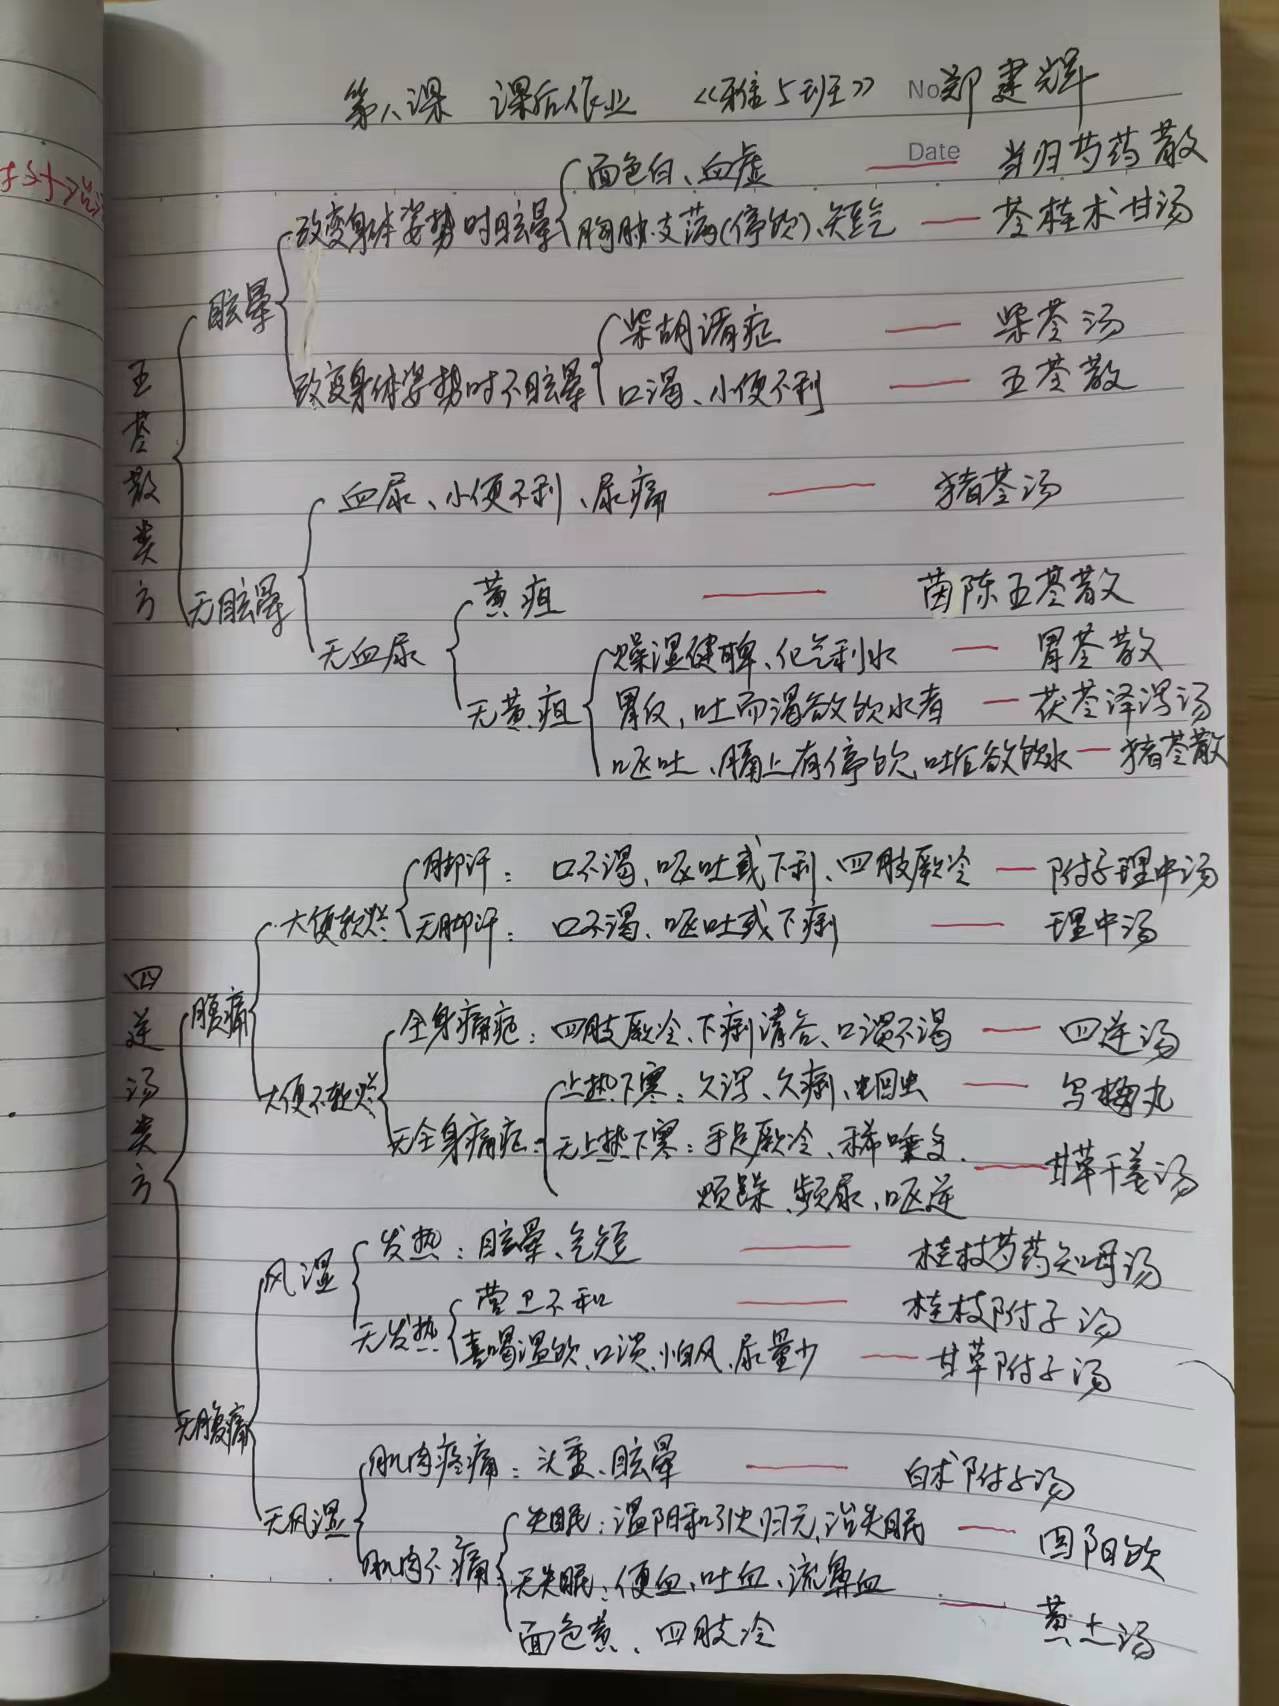 第八课 课后作业 《雅5班》 No 郑建辉
Date
五苓散类方
眩晕
改变身体姿势时眩晕
面色白、血虚 —— 当归芍药散
胸胁支满(停饮)、短气 —— 苓桂术甘汤
改变身体姿势时不眩晕
柴胡诸症 —— 柴苓汤
口渴、小便不利 —— 五苓散
无眩晕
血尿、小便不利、尿痛 —— 猪苓汤
无血尿
黄疸 —— 茵陈五苓散
无黄疸
燥湿健脾、化气利水 — 胃苓散
胃反,吐而渴欲饮水者 — 茯苓泽泻汤
呕吐、膈上有停饮,吐后欲饮水 — 猪苓散
四逆汤类方
腹痛
大便软烂
脚汗: 口不渴、呕吐或下利、四肢厥冷 — 附子理中汤
无脚汗: 口不渴、呕吐或下痢 —— 理中汤
大便不软烂
全身痛疼: 四肢厥冷、下痢清谷、口淡不渴 —— 四逆汤
无全身痛疼:
上热下寒: 久泻、久痢、蛔虫 —— 乌梅丸
无上热下寒: 手足厥冷、稀唾多、 —— 甘草干姜汤
烦躁、频尿、呕逆
无腹痛
风湿
发热: 眩晕、气短 —— 桂枝芍药知母汤
无发热
营卫不和 —— 桂枝附子汤
喜喝温饮、口淡、怕风、尿量少 —— 甘草附子汤
无风湿
肌肉疼痛: 头重、眩晕 —— 白术附子汤
肌肉不痛
失眠: 温阳和引火归元,治失眠 —— 回阳饮
无失眠: 便血、吐血、流鼻血 —— 黄土汤
面色黄、四肢冷